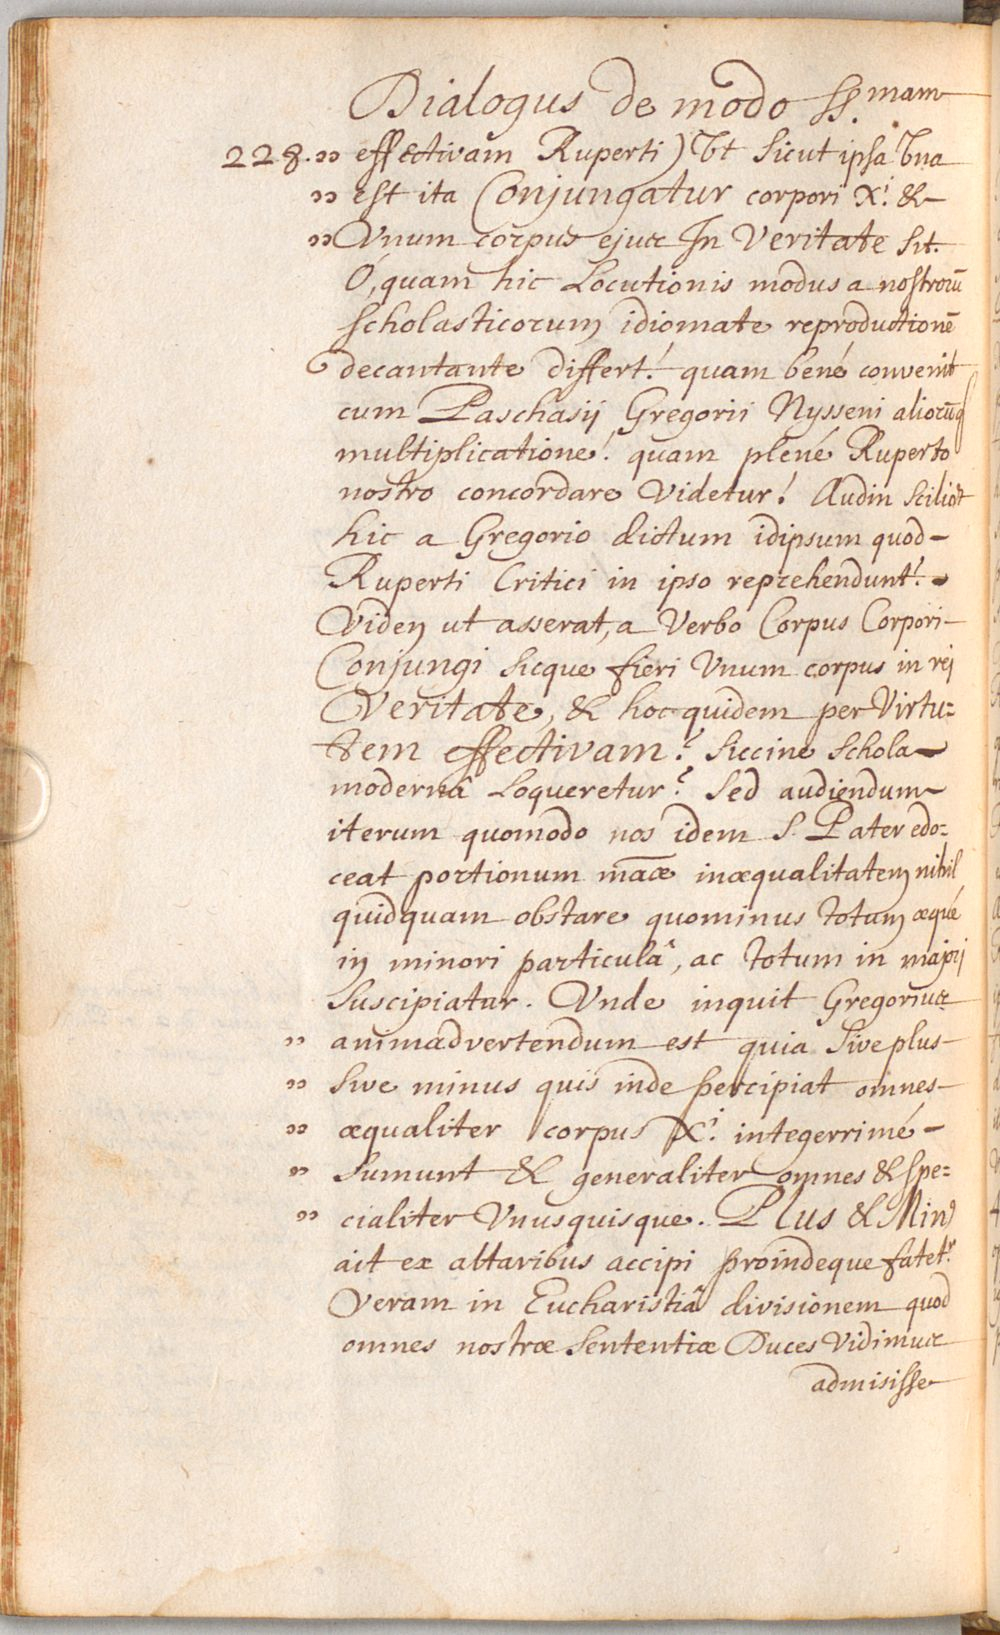 Dialogus de modo SS.mam
228. „ effectivam Ruperti) Vt sicut ipsa Vna
„ est ita Conjungatur corpori Xi. &
„ Vnum corpus ejus In Veritate sit.
O, quam hic Locutionis modus a nostrorū
scholasticorum idiomate reproductionē
decantante differt! quam bené convenit
cum Paschasij Gregorii Nysseni aliorūq
multiplicatione! quam plené Ruperto
nostro concordare Videtur! Audin scilict
hic a Gregorio dictum idipsum quod
Ruperti Critici in ipso reprehendunt!
Viden ut asserat, a Verbo Corpus Corpori
Conjungi sicque fieri Vnum corpus in rei
Veritate, & hoc quidem per Virtu=
tem effectivam? siccine schola
modernâ Loqueretur? sed audiendum
iterum quomodo nos idem S. Pater edo=
ceat portionum māæ inæqualitatem nihil
quidquam obstare quominus totum æqué
in minori particulâ, ac totum in majori
suscipiatur. Vnde inquit Gregorius
„ animadvertendum est quia sive plus
„ sive minus quis inde percipiat omnes
„ æqualiter corpus Xi. integerrimé
„ sumunt & generaliter omnes & spe=
„ cialiter Vnusquisque. Plus & Min9
ait ex altaribus accipi proindeque fatet.r
Veram in Eucharistiâ divisionem quod
omnes nostræ sententiæ Duces Vidimus
admisisse